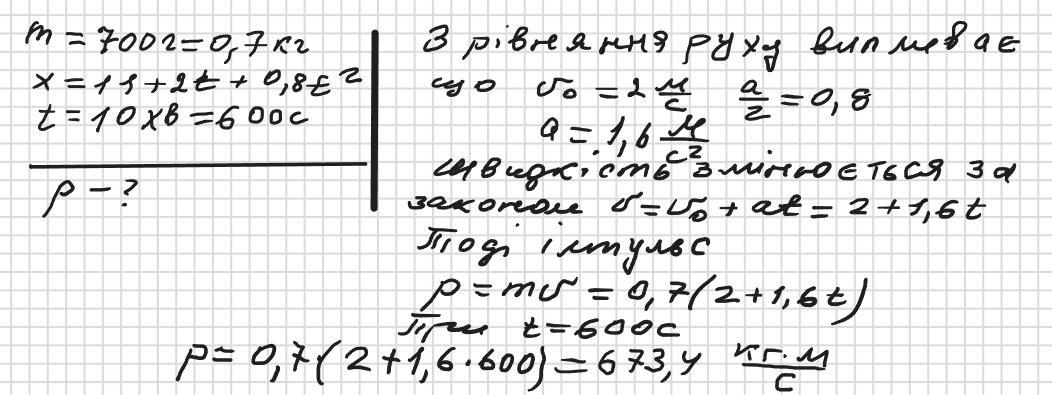 m = 700г = 0,7 кг
x = 11 + 2t + 0,8t²
t = 10 хв = 600с
p - ?
З рівняння руху випливає
що v₀ = 2 м/с a/2 = 0,8
a = 1,6 м/с²
Швидкість змінюється за
законом v = v₀ + at = 2 + 1,6t
Тоді імпульс
p = mv = 0,7(2 + 1,6t)
При t = 600с
p = 0,7·(2 + 1,6·600) = 673,4 кг·м/с